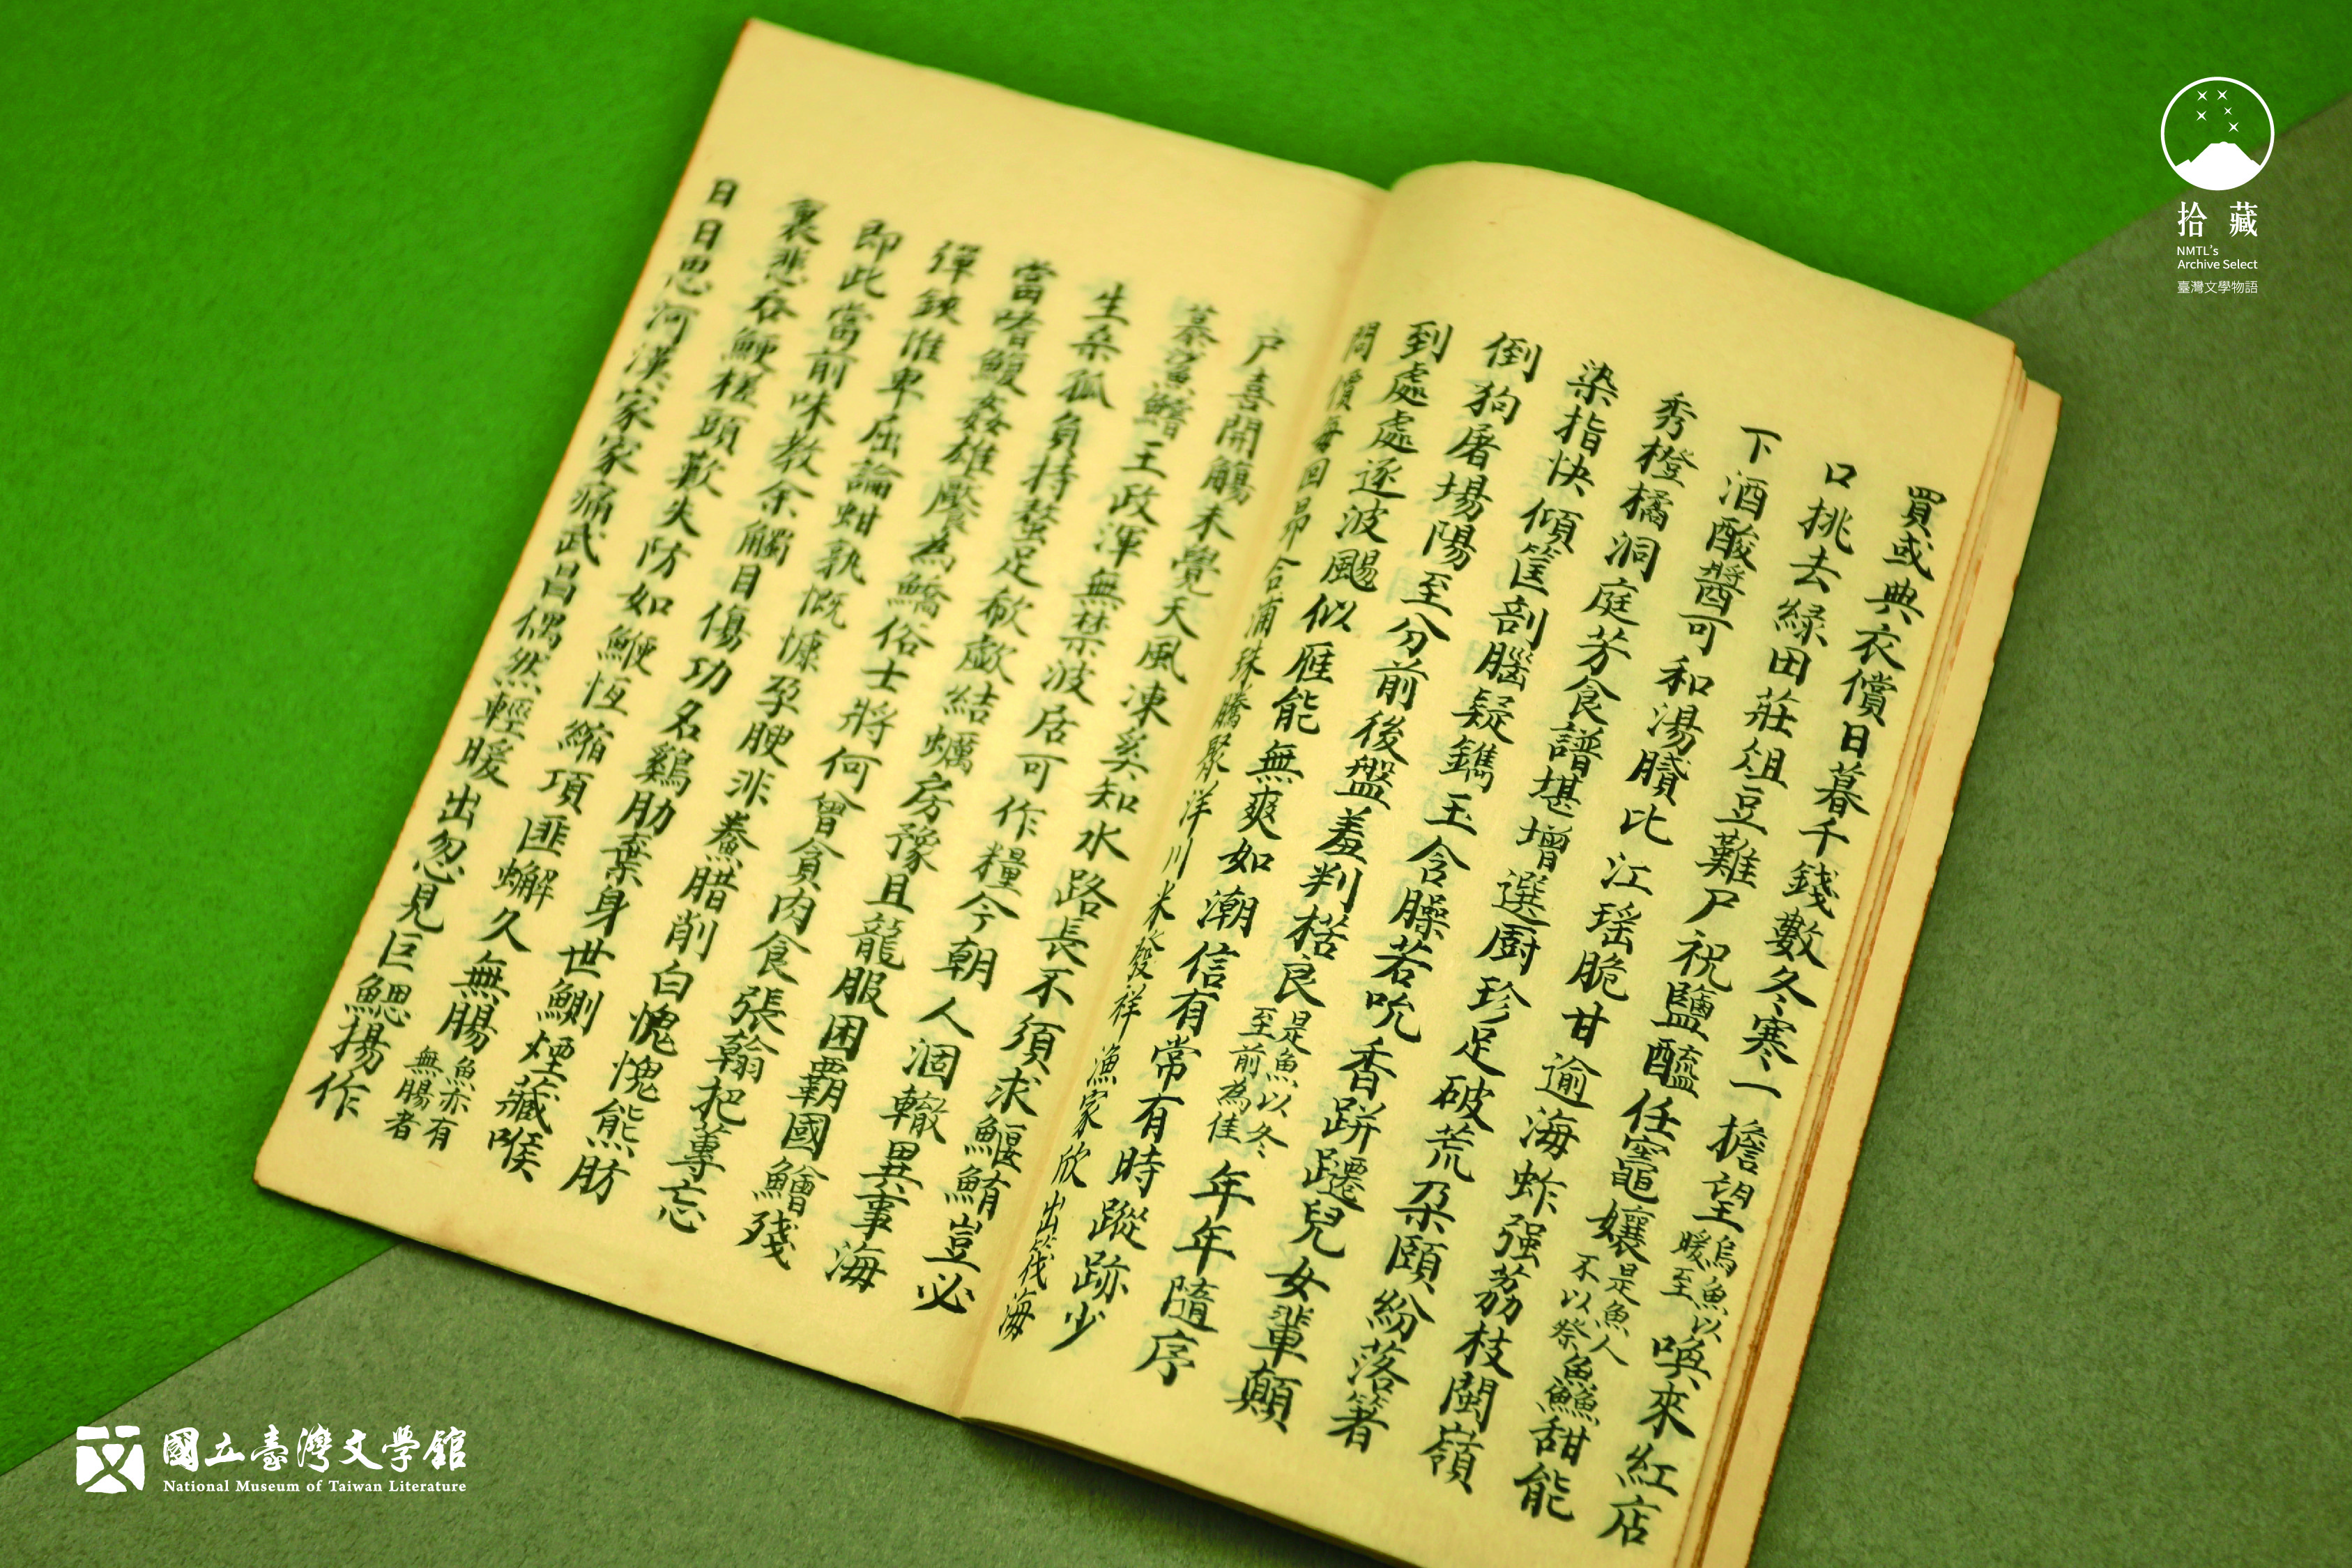 買或典衣償日暮千錢數冬寒一擔望烏魚以暖至喚來紅店
口挑去綠田莊俎豆難尸祝鹽醯任竈孃是魚人不以祭魚鱻甜能
下酒酸醬可和湯臇比江瑤脆甘逾海蚱强荔枝閩嶺
秀橙橘洞庭芳食譜堪增選厨珍足破荒朶頤紛落箸
染指快傾筐剖腦疑鐫玉含臊若吮香跰躚兒女輩顛
倒狗屠場陽至分前後盤羞判楛良是魚以冬至前為佳年年隨序
到處處逐波颺似雁能無爽如潮信有常有時蹤跡少
問價每回昻合浦珠騰聚洋川米發祥漁家欣出筏海
戶喜開觴未覺天風凍奚知水路長不須求鰋鮪豈必
慕鯊鱨王政渾無禁波居可作糧今朝人涸轍異事海
生桑孤負持螯足欷歔結蠣房豫且龍服困霸國鱠殘
當嗜鰒姦雄饜為鱎俗士將何曾貪肉食張翰把蓴忘
彈鋏惟卑屈論蚶孰慨慷孕腴非鮝腊削白愧愧熊肪
即此當前味教余觸目傷功名鷄肋棄身世鰂煙藏喉
裏悲吞鯁槎頭歎失防如鯾恆縮項匪蠏久無腸魚亦有無腸者
日日思河漢家家痛武昌偶然輕暖出忽見巨鰓揚作
拾藏
NMTL's
Archive Select
臺灣文學物語
國立臺灣文學館
National Museum of Taiwan Literature